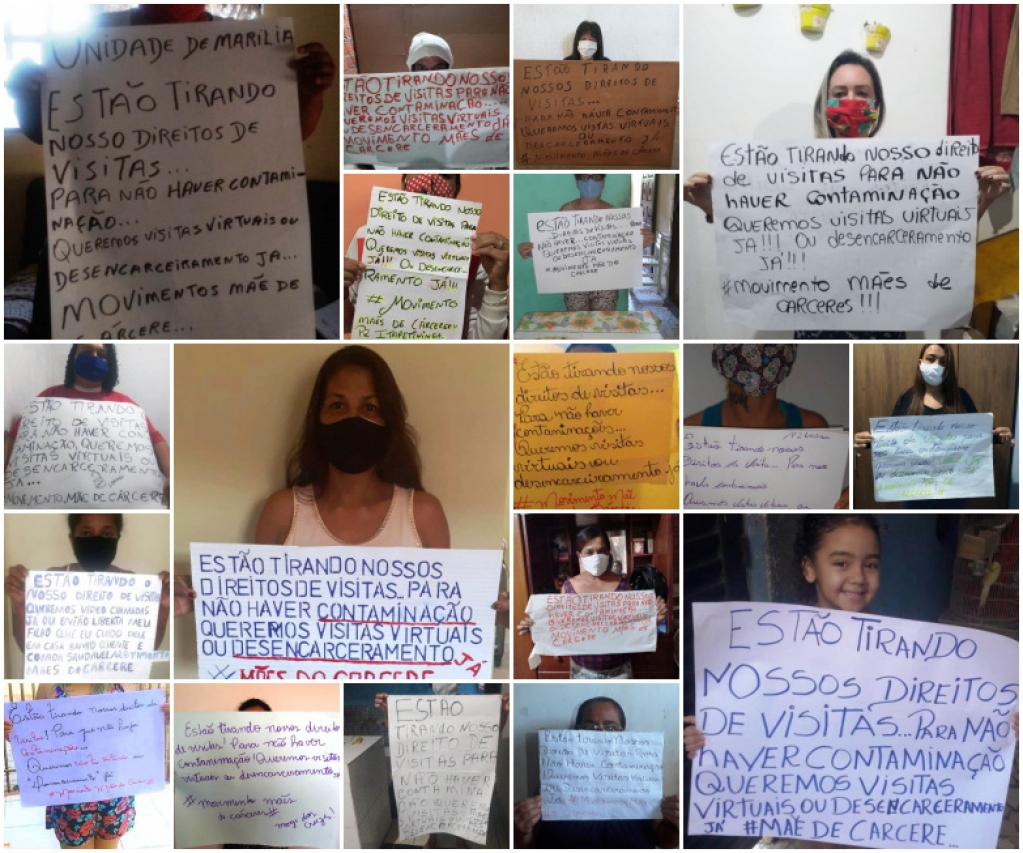 UNIDADE DE MARILIA
ESTÃO TIRANDO
NOSSO DIREITOS DE
VISITAS...
PARA NÃO HAVER CONTAMI-
NAÇÃO...
QUEREMOS VISITAS VIRTUAIS OU
DESENCARCEIRAMENTO JA...
MOVIMENTOS MÃE DE
CÁRCERE...
TÃO TIRANDO NOSSOS
EITOS DE VISITAS PARA NÃO
VER CONTAMINAÇÃO...
UEREMOS VISITAS VIRTUAIS
U DESENCARCERAMENTO JÁ
MOVIMENTO MÃES DE
CARCERE
ESTÃO TIRANDO
NOSSOS DIREITOS DE
VISITAS...
QUEREMOS VISTAS VIRTUAIS
OU
DESCARCERAMENTO JÁ
ESTÃO TIRANDO NOSSO direito
de visitas PARA NÃO
HAVER CONTAMINAÇÃO
QUEREMOS VISITAS VIRTUAIS
JA!!! OU desencarceramento
JÁ!!!
#movimento MAẼS de
CARCERES!!!
ESTÃO TIRANDO NOSSO
DIREITO DE VISITA PARA
NÃO HAVER CONTAMINAÇÃO
QUEREMOS VISITA VIRTUAIS
JA!!! OU DESENCARCE-
RAMENTO JA!!!
# MOVIMENTO
MAẼS DE CARCERE
P2 ITAPETININGA
ESTÃO TIRANDO NOSSOS
DIREITOS DE VISITAS
NÃO HAVER... CONTAMINAÇÃO
QUEREMOS VISITAS VIRTUAIS
OU DESENCARCERAMENTO
JA
# MOVIMENTO MÃE DE
CÁRCERE
ESTÃO TIRANDO
DIREITO DE VISITAS
PARA NÃO HAVER CON
TAMINAÇÃO, QUEREMOS
VISITAS VIRTUAIS OU
DESENCARCERAMENTO
JA...
MOVIMENTO, MÃE DE CÁRCERE
ESTÃO TIRANDO NOSSOS
DIREITOS DE VISITAS.. PARA
NÃO HAVER CONTAMINAÇÃO
QUEREMOS VISITAS VIRTUAIS
OU DESENCARCERAMENTO JÁ
# MÃES DO CARCERE
Estão tirando nossos
direitos de visitas...
Para não haver
contaminações...
Queremos visitas
virtuais ou
desencarceiramento já
#Movimento Mãe
Estão tirando nossos
Direitos de visita... Para não
haver contaminação
Queremos visitas
Estão tirando nosso
ESTÃO TIRANDO O
NOSSO DIREITO DE VISITA
QUEREMOS VIDEO CHAMADAS
JA OU ENTÃO LIBERTA MEU
FILHO QUE EU CUIDO DELE
EM CASA BANHO QUENTE E
COMIDA SAUDAVEL
MAẼS DO CARCERE
ESTÃO TIRANDO NOSSOS
DIREITOS DE VISITAS PARA NÃO
HAVER CONTAMINAÇÃO
QUEREMOS VISITAS VIRTUAIS
MOVIMENTO MÃES DE
CARCERE
ESTÃO TIRANDO
NOSSOS DIREITOS
DE VISITAS... PARA NÃO
HAVER CONTAMINAÇÃO
QUEREMOS VISITAS
VIRTUAIS OU DESENCARCERAMENTO
JÁ #MAE DE CARCERE...
Estão tirando nossos direitos de
visitas! Para que não haja
Contaminação...
Queremos
Estão tirando nosso direito
de visitas! Para não haver
contaminação! Queremos visitas
virtuais ou desencarceramento
#movimento mães
de cárceres#
ESTÃO
TIRANDO NOSSO
DIREITO DE
VISITAS PARA
NÃO HAVER
CONTAMINA
ÇÃO QUEREMOS
Estão Tirando Nossos
Direito De Visitas Para
Não Haver Contaminação
Queremos Visitas Virtuais
Ou Desencarceramento